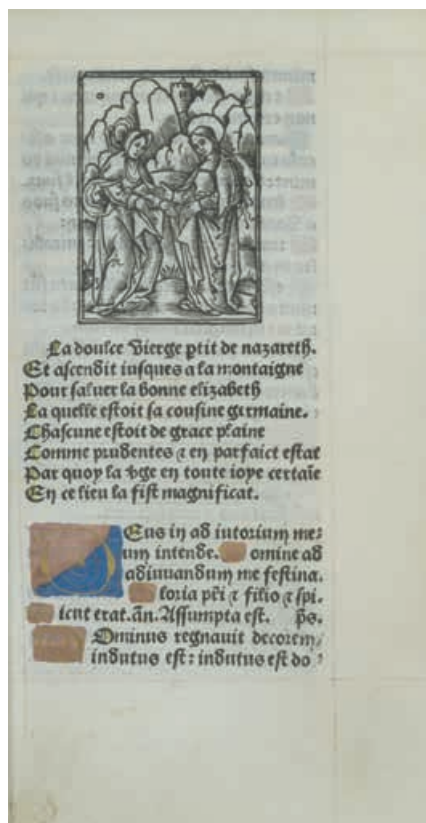 La doulce vierge ptit de nazareth.
Et ascendit iusques a la montaigne
Pour saluer la bonne elizabeth
La quelle estoit sa cousine germaine.
Chascune estoit de grace plaine
Comme prudentes ⁊ en parfaict estat
Par quoy la vge en toute ioye certaĩe
En ce lieu la fist magnificat.
Eus in ad iutorium me⸗
um intende. omine ad
adiuuandum me festina.
loria pr̃i ⁊ filio ⁊ spi.
icut erat. añ. Assumpta est. p̃s.
Ominus regnauit decorem/
indutus est: indutus est do⸗